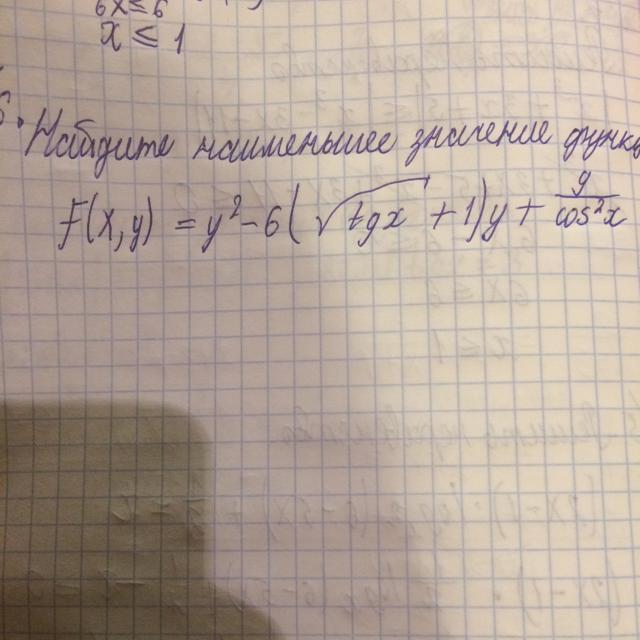 6x ≤ 6
x ≤ 1
Найдите наименьшее значение функц
F(x,y) = y² - 6(√tgx + 1)y + y/cos²x